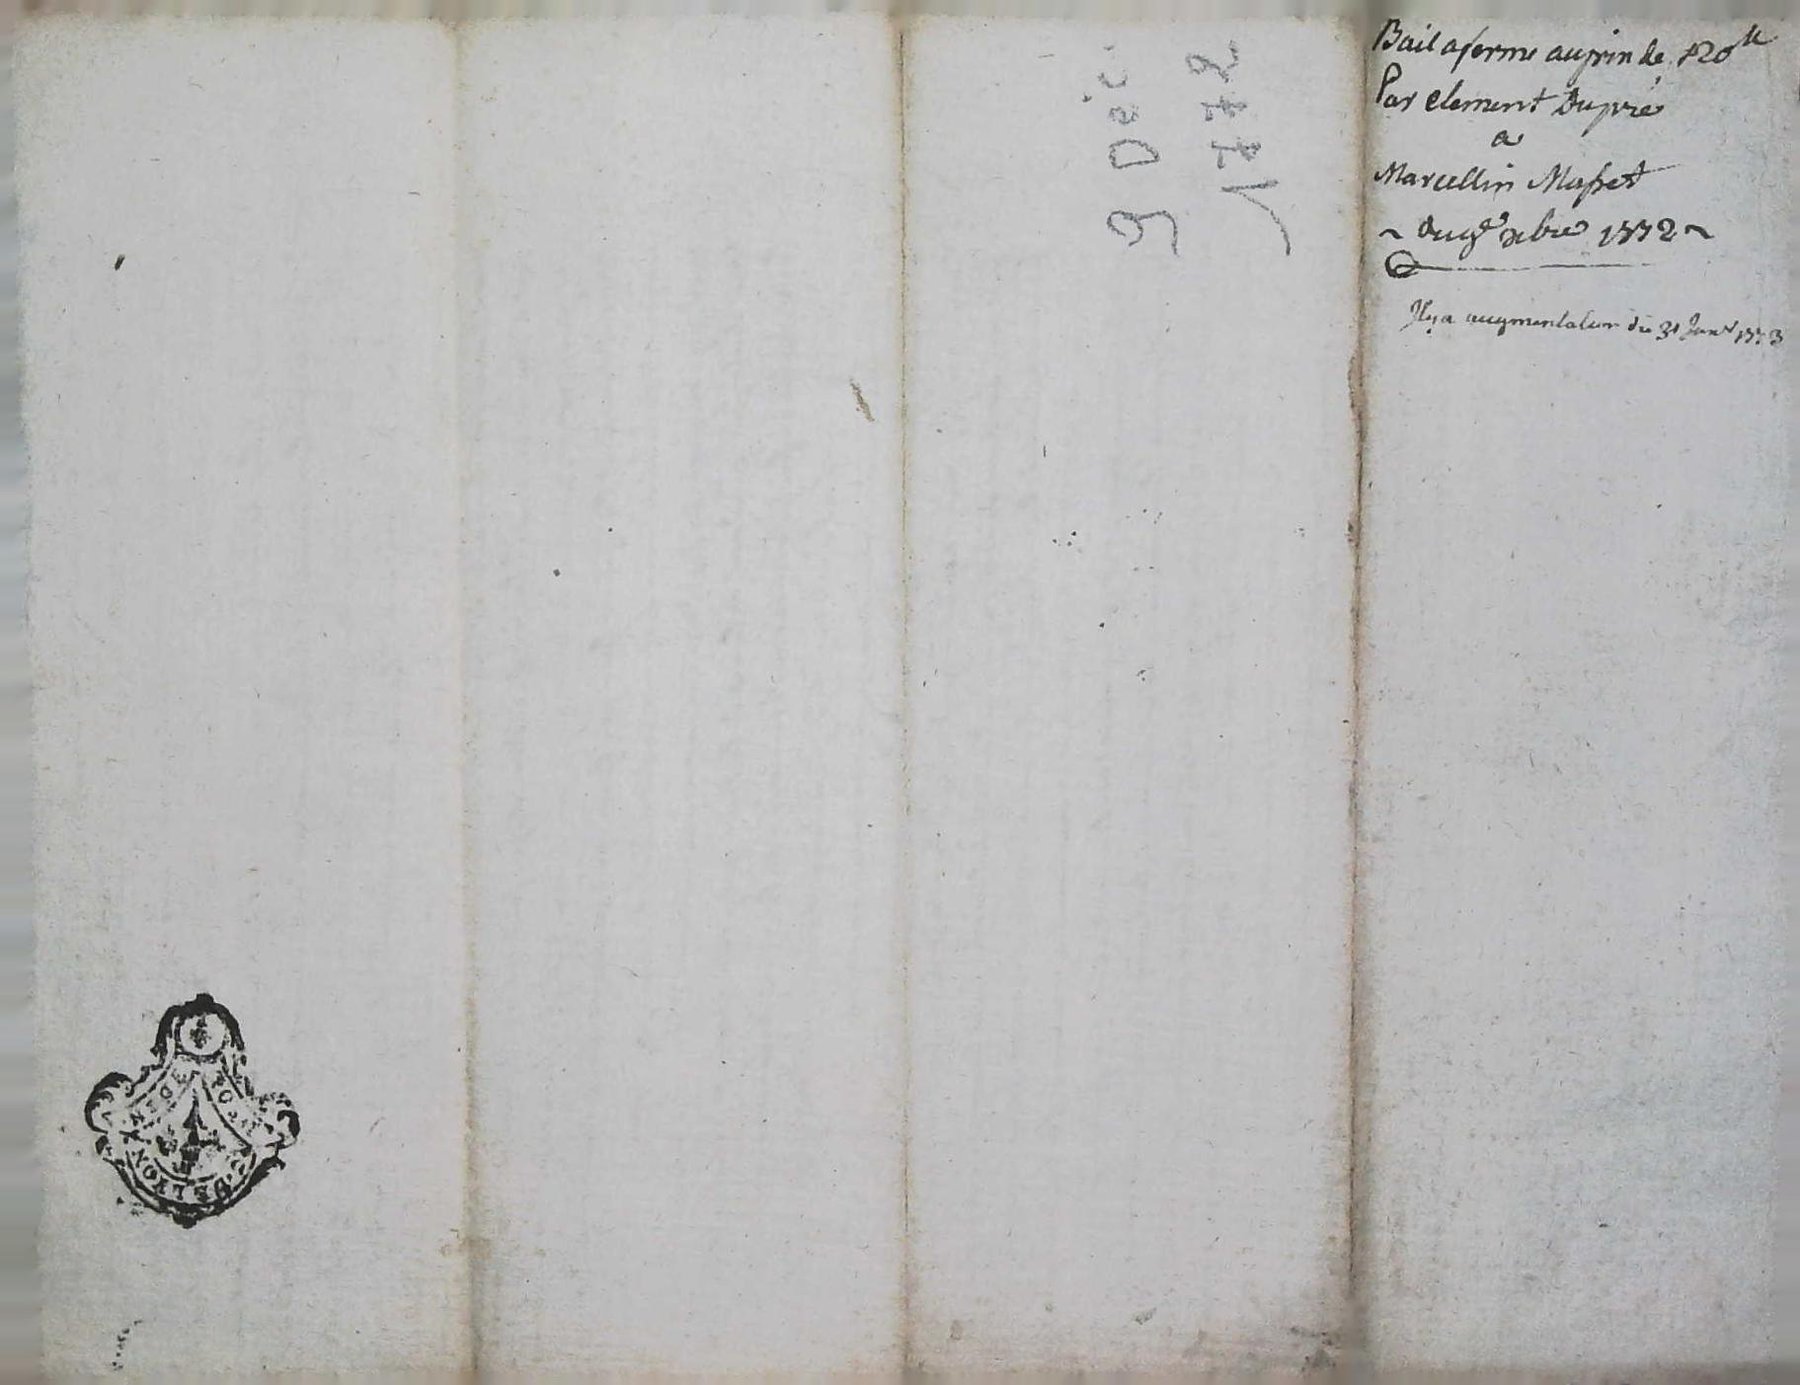 Bail a ferme au prin de 120 ll
Par Clement Dupré
a
Marcellin Masset
~ du 9e xbre 1772 ~
Il y a augmentation du 31 Janv 1773
9 Déc
1772
DE LYON